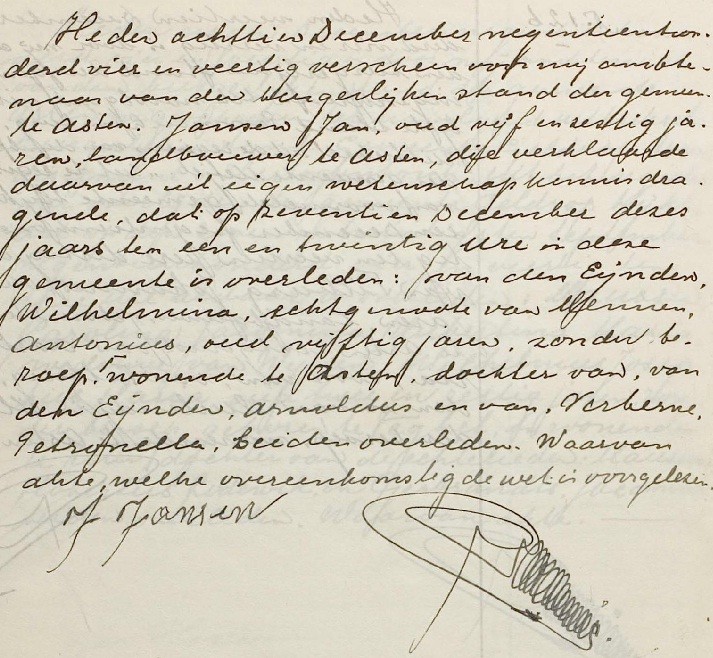 Heden achttien December negentienhon-
derd vier en veertig verscheen voor mij ambte-
naar van den burgerlijken stand der gemeen-
te Asten. Jansen Jan, oud vijf en zestig ja-
ren, landbouwer te Asten, die verklaarde
daarvan uit eigen wetenschap kennis dra-
gende, dat op zeventien December dezes
jaars ten een en twintig ure in deze
gemeente is overleden: van den Eijnden,
Wilhelmina, echtgenoote van Mennen,
Antonius, oud vijftig jaren, zonder be-
roep, wonende te Asten, dochter van, van
den Eijnden, Arnoldus en van, Verberne,
Petronella, beiden overleden. Waarvan
akte, welke overeenkomstig de wet is voorgelezen.
J Jansen